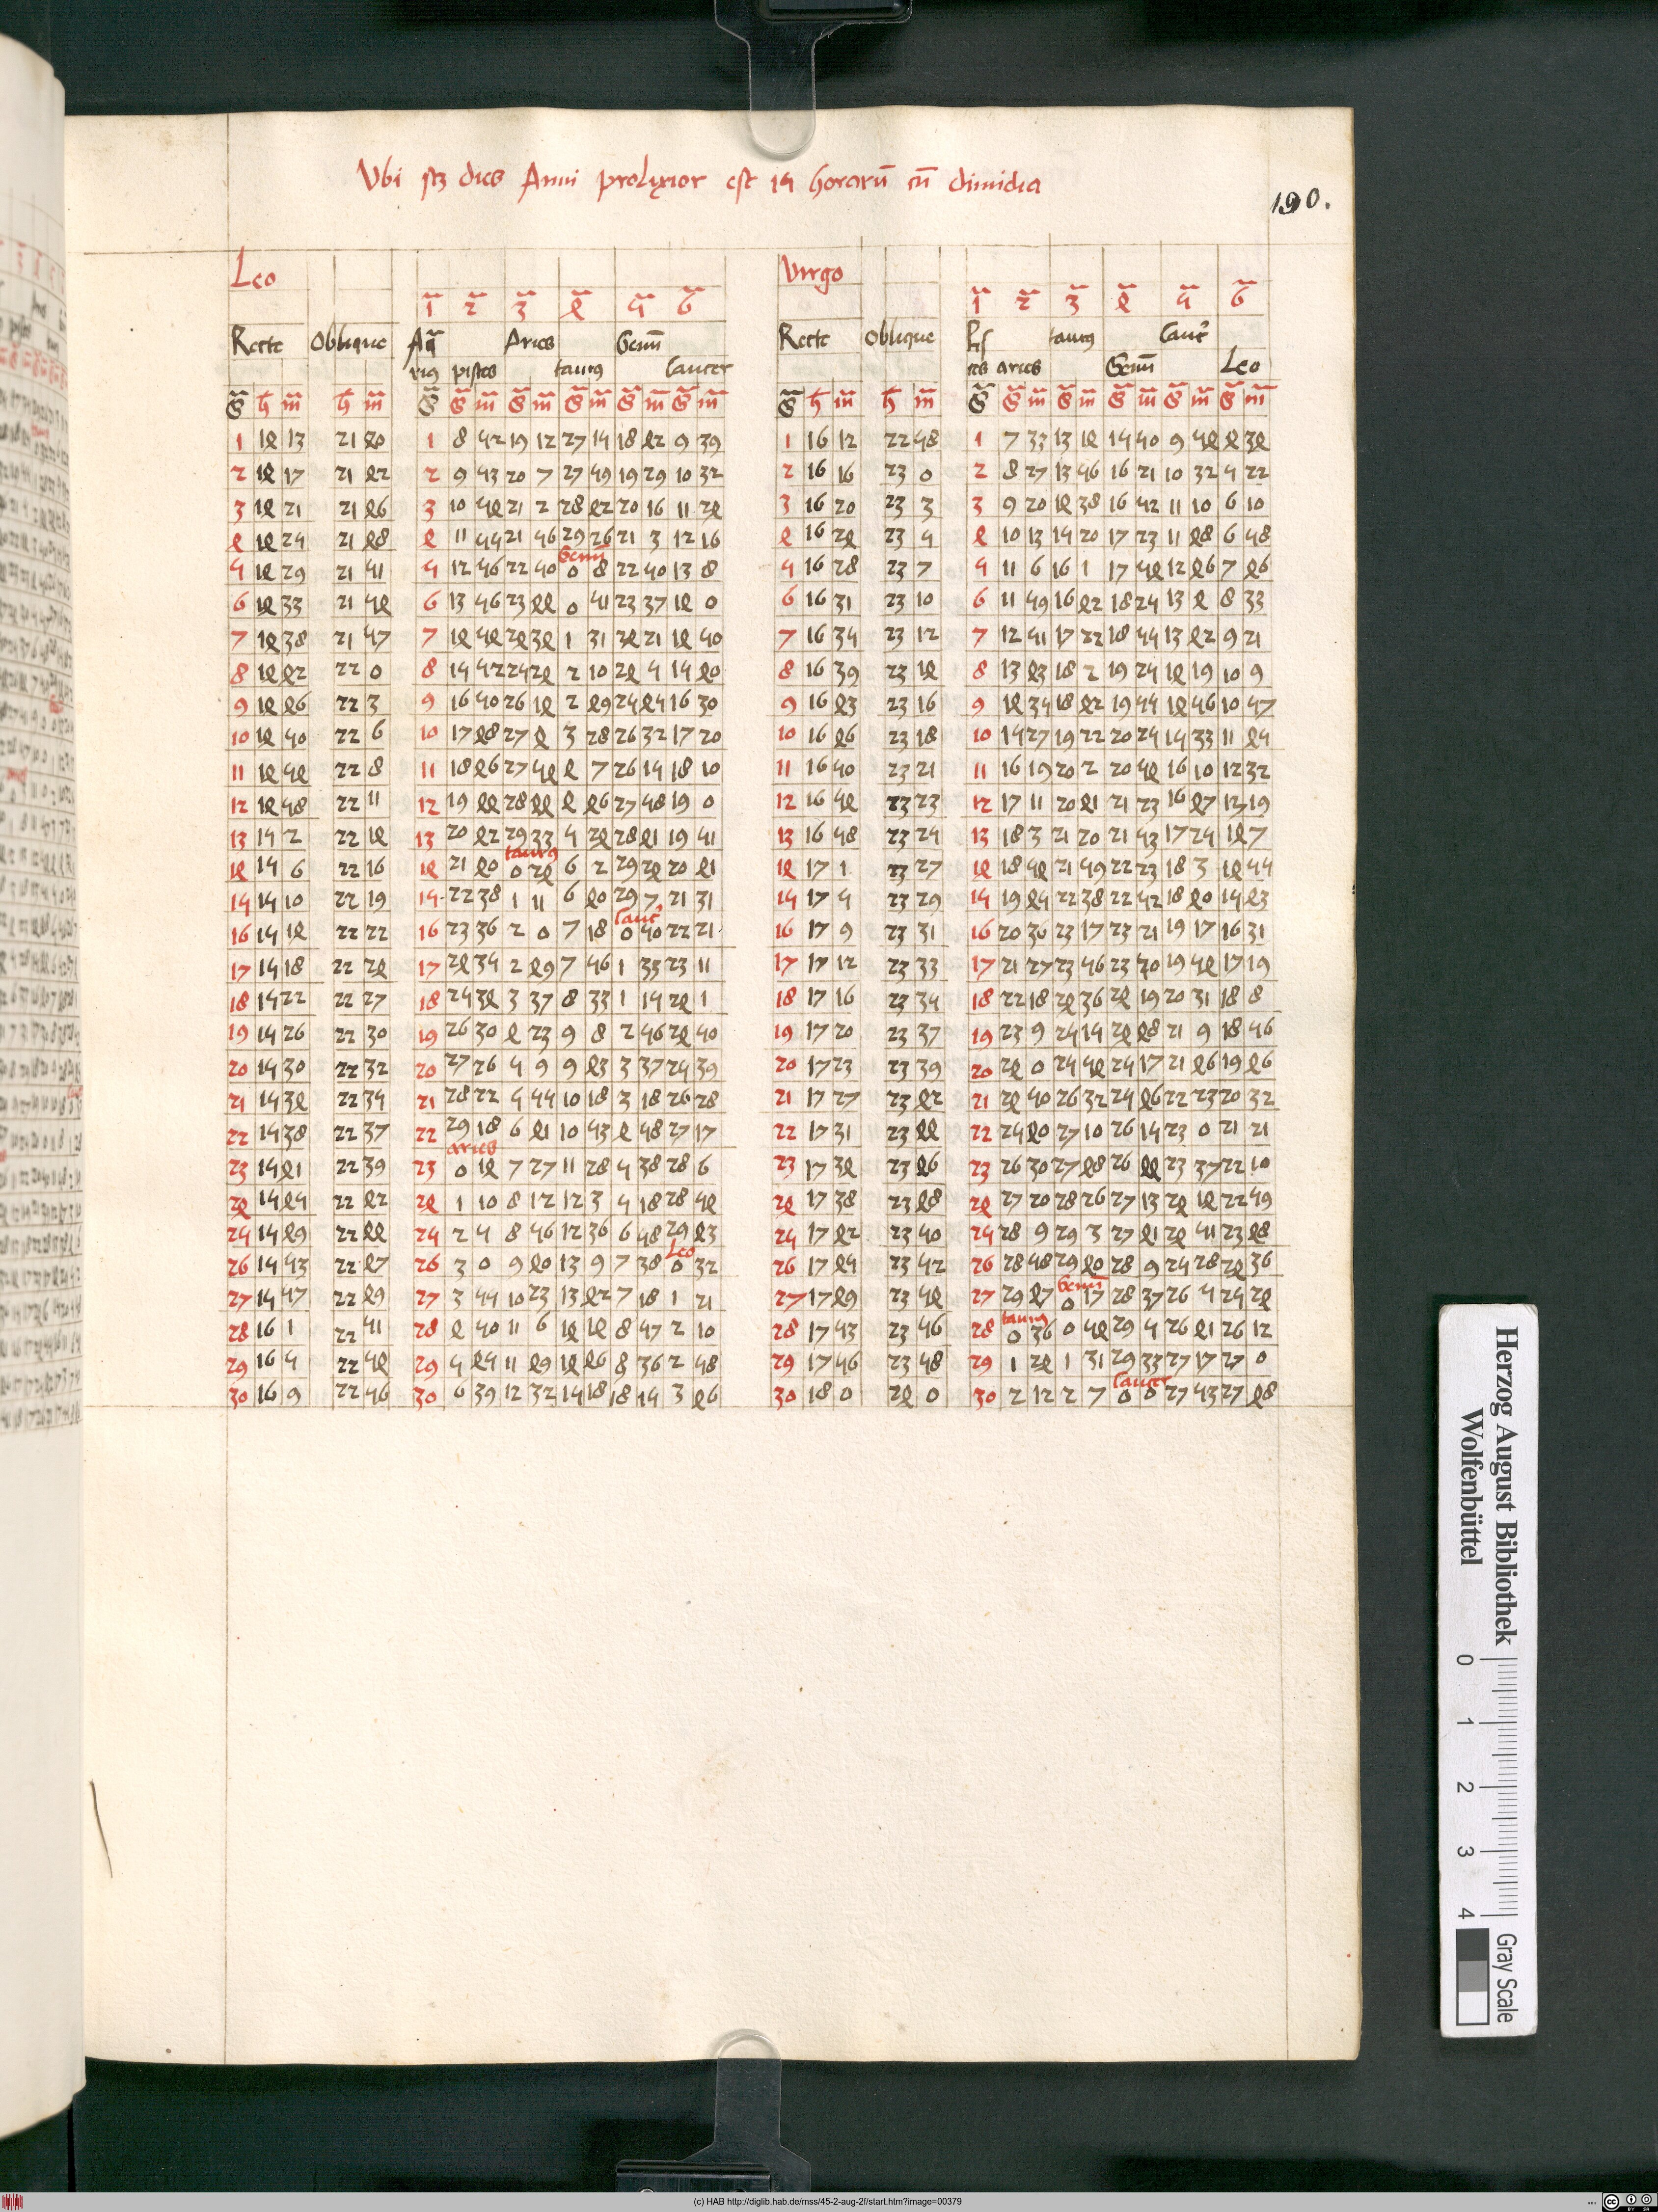 Vbi sz dies Anni prolixior est 15 horarū cū dimidia
190.
Leo Virgo
1 2 3 4 5 6 1 2 3 4 5 6
Recte Oblique Aq̄ Aries Gemī Recte Oblique Pis taurꝰ Canc̄
riꝰ pisces taurꝰ Cancer ces aries Gemī Leo
G h m h m G G m G m G m G m G m G h m h m G G m G m G m G m G m
1 14 13 21 40 1 8 52 19 12 27 15 18 42 9 39 1 16 12 22 58 1 7 33 13 14 15 50 9 54 4 34
2 14 17 21 42 2 9 53 20 7 27 59 19 29 10 32 2 16 16 23 0 2 8 27 13 56 16 21 10 32 5 22
3 14 21 21 46 3 10 54 21 2 28 42 20 16 11 24 3 16 20 23 3 3 9 20 14 38 16 52 11 10 6 10
4 14 25 21 48 4 11 55 21 56 29 26 21 3 12 16 4 16 24 23 5 4 10 13 15 20 17 23 11 48 6 48
Gemī
5 14 29 21 51 5 12 56 22 50 0 8 22 50 13 8 5 16 28 23 7 5 11 6 16 1 17 54 12 46 7 46
6 14 33 21 54 6 13 56 23 44 0 51 23 37 14 0 6 16 31 23 10 6 11 59 16 42 18 25 13 4 8 33
7 14 38 21 57 7 14 54 24 34 1 31 24 21 14 50 7 16 35 23 12 7 12 51 17 22 18 55 13 42 9 21
8 14 42 22 0 8 15 52 25 24 2 10 24 5 15 40 8 16 39 23 14 8 13 43 18 2 19 25 14 19 10 9
9 14 46 22 3 9 16 50 26 14 2 49 25 45 16 30 9 16 43 23 16 9 14 35 18 42 19 55 14 56 10 57
10 14 50 22 6 10 17 48 27 4 3 28 26 32 17 20 10 16 46 23 18 10 15 27 19 22 20 25 15 33 11 45
11 14 54 22 8 11 18 46 27 54 4 7 26 15 18 10 11 16 50 23 21 11 16 19 20 2 20 54 16 10 12 32
12 14 58 22 11 12 19 44 28 44 4 46 27 58 19 0 12 16 54 23 23 12 17 11 20 41 21 23 16 47 13 19
13 15 2 22 14 13 20 42 29 33 5 24 28 41 19 51 13 16 58 23 25 13 18 3 21 20 21 53 17 25 14 7
taurꝰ
14 15 6 22 16 14 21 40 0 24 6 2 29 24 20 41 14 17 1 23 27 14 18 54 21 59 22 23 18 3 14 55
15 15 10 22 19 15 22 38 1 11 6 40 29 7 21 31 15 17 5 23 29 15 19 45 22 38 22 52 18 40 15 43
Canc̄
16 15 14 22 22 16 23 36 2 0 7 18 0 50 22 21 16 17 9 23 31 16 20 36 23 17 23 21 19 17 16 31
17 15 18 22 24 17 24 35 2 49 7 56 1 33 23 11 17 17 12 23 33 17 21 27 23 56 23 50 19 54 17 19
18 15 22 22 27 18 25 34 3 37 8 33 1 15 24 1 18 17 16 23 35 18 22 18 24 36 24 19 20 31 18 8
19 15 26 22 30 19 26 30 4 23 9 8 2 56 24 50 19 17 20 23 37 19 23 9 25 15 24 48 21 9 18 56
20 15 30 22 32 20 27 26 5 9 9 43 3 37 25 39 20 17 23 23 39 20 24 0 25 54 25 17 21 46 19 46
21 15 34 22 35 21 28 22 5 55 10 18 3 18 26 28 21 17 27 23 42 21 24 50 26 32 25 46 22 23 20 32
22 15 38 22 37 22 29 18 6 41 10 53 4 58 27 17 22 17 31 23 44 22 25 40 27 10 26 15 23 0 21 21
aries
23 15 41 22 39 23 0 14 7 27 11 28 5 38 28 6 23 17 34 23 46 23 26 30 27 48 26 44 23 37 22 10
24 15 45 22 42 24 1 10 8 12 12 3 5 18 28 54 24 17 38 23 48 24 27 20 28 26 27 13 24 14 22 59
25 15 49 22 44 25 2 5 8 56 12 36 6 58 29 43 25 17 42 23 50 25 28 9 29 3 27 41 24 51 23 48
Leo
26 15 53 22 47 26 3 0 9 40 13 9 7 38 0 32 26 17 45 23 52 26 28 58 29 40 28 9 25 28 24 36
Gemī
27 15 57 22 49 27 3 55 10 23 13 42 7 18 1 21 27 17 49 23 54 27 29 47 0 17 28 37 26 5 25 24
taurꝰ
28 16 1 22 51 28 4 50 11 6 14 14 8 57 2 10 28 17 53 23 56 28 0 36 0 54 29 5 26 41 26 12
29 16 5 22 54 29 5 45 11 49 14 46 8 36 2 58 29 17 56 23 58 29 1 24 1 31 29 33 27 17 27 0
Cancer
30 16 9 22 56 30 6 39 12 32 15 18 18 15 3 46 30 18 0 24 0 30 2 12 2 7 0 0 27 53 27 48
Herzog August Bibliothek
Wolfenbüttel
0 1 2 3 4
Gray Scale
(c) HAB http://diglib.hab.de/mss/45-2-aug-2f/start.htm?image=00379